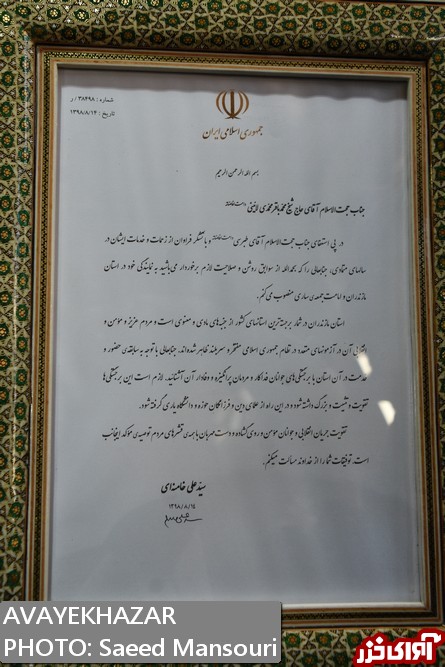 شماره : ۳۸۴۹۸ / ر
تاریخ : ۱۳۹۸/۸/۱۴
جمهوری اسلامی ایران
بسم الله الرحمن الرحیم
جناب حجت‌الاسلام آقای حاج شیخ محمدباقر محمدی لائینی
در پی استعفای جناب حجت‌الاسلام آقای طبرسی و با تشکر فراوان از زحمات و خدمات ایشان در
سالهای متمادی، جنابعالی را که بحمدالله از سوابق روشن و صلاحیت لازم برخوردار می‌باشید به نمایندگی خود در استان
مازندران و امامت جمعه‌ی ساری منصوب می‌کنم.
استان مازندران در شمار برجسته‌ترین استانهای کشور از جنبه‌های مادی و معنوی است و مردم عزیز و مؤمن و
انقلابی آن در آزمونهای متعدد در نظام جمهوری اسلامی مفتخر و سربلند ظاهر شده‌اند. جنابعالی با توجه به سابقه‌ی حضور و
خدمت در آن استان با برجستگی‌های جوانان فداکار و مردمان پرانگیزه و وفادار آن آشنائید. لازم است این برجستگی‌ها
تقویت و تثبیت و بزرگ داشته شود و در این راه از علمای دین و فرزانگان حوزه و دانشگاه یاری گرفته شود.
تقویت جریان انقلابی و جوانان مؤمن و روی گشاده و دست مهربان با همه‌ی قشرهای مردم توصیه‌ی مؤکد اینجانب
است. توفیقات شما را از خداوند مسألت میکنم.
سیدعلی خامنه‌ای
۱۳۹۸/۸/۱۴
AVAYEKHAZAR
PHOTO: Saeed Mansouri
آوای خزر